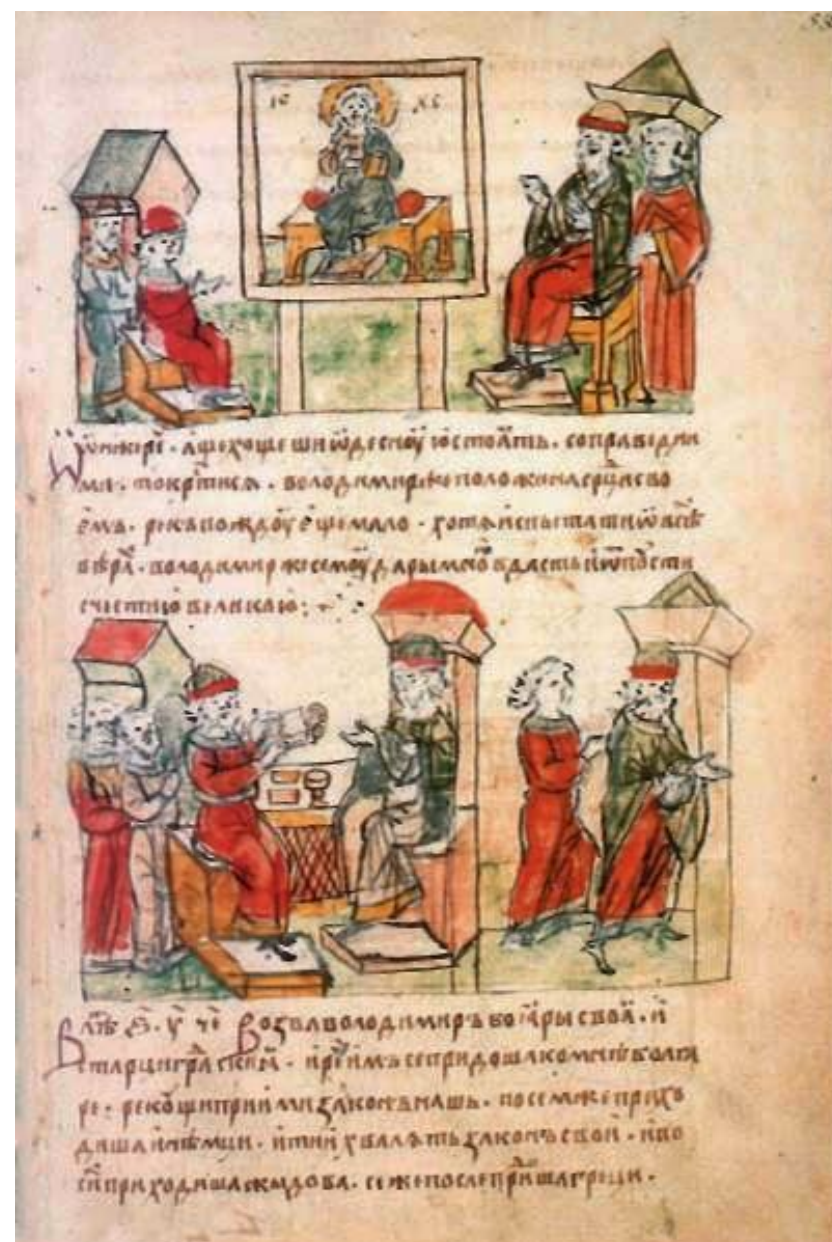 IС ХС
Ѿнж҇рє҇ . ащєхощєшиѡдєсноую҇стоӕть . соправєдни
ми . токр҇тисѧ . володимиржєположинасрц҇исво
ємъ . рєкъпождоуєщємало . хотѧиспытатиѡвсѣ
вѣра҇ . володимиржєсємоударымно҇вдасть и҇ѿпоусти
счєстиювєликою :
Влѣ҇ ҂ѕ . у҃ чє҃ Возвалволодимиръбоӕрысвоӕ . и
старцигра҇скиӕ . ирє҇имъсєпридошакомнѣболга
рє . рєкоущиприимизаконънашь . посємжєприхо
дишаинѣмци . итиихвалѧтьзаконъсвои . и҇по
си҇приходишажидова . сєжєпослєпр҇ишагрєци .